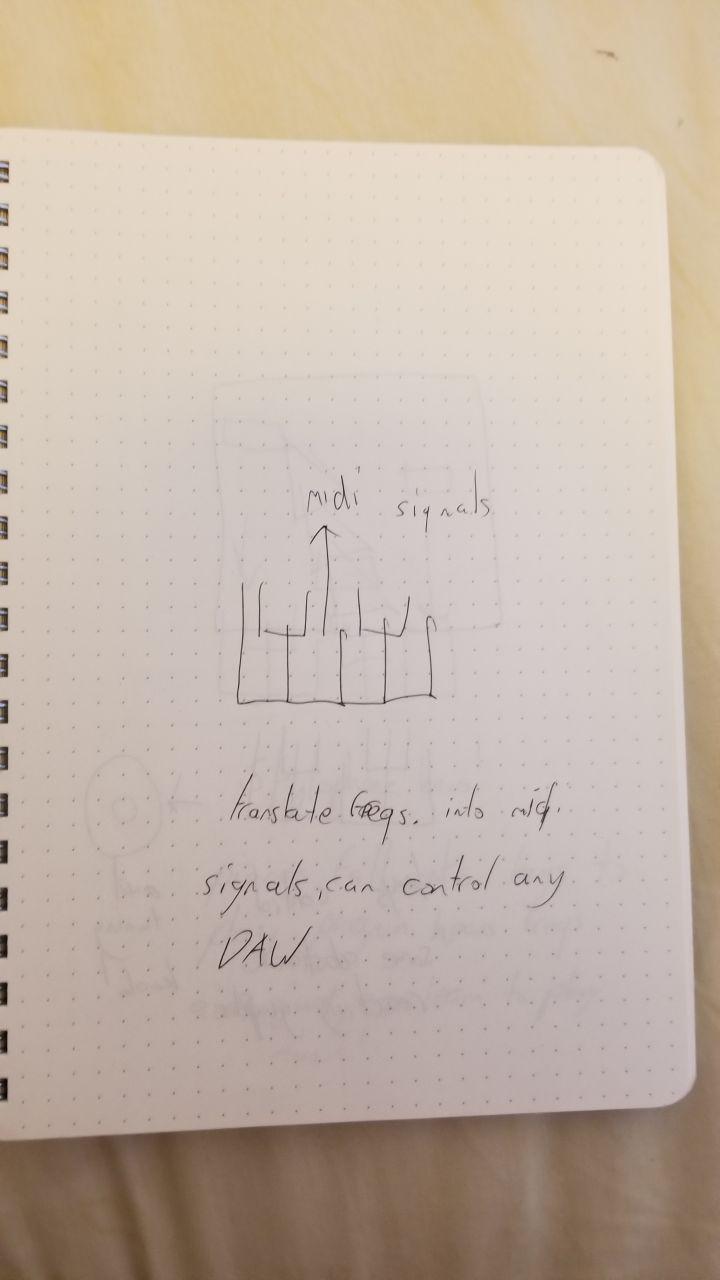 midi signals
translate freqs. into midi
signals, can control any
DAW